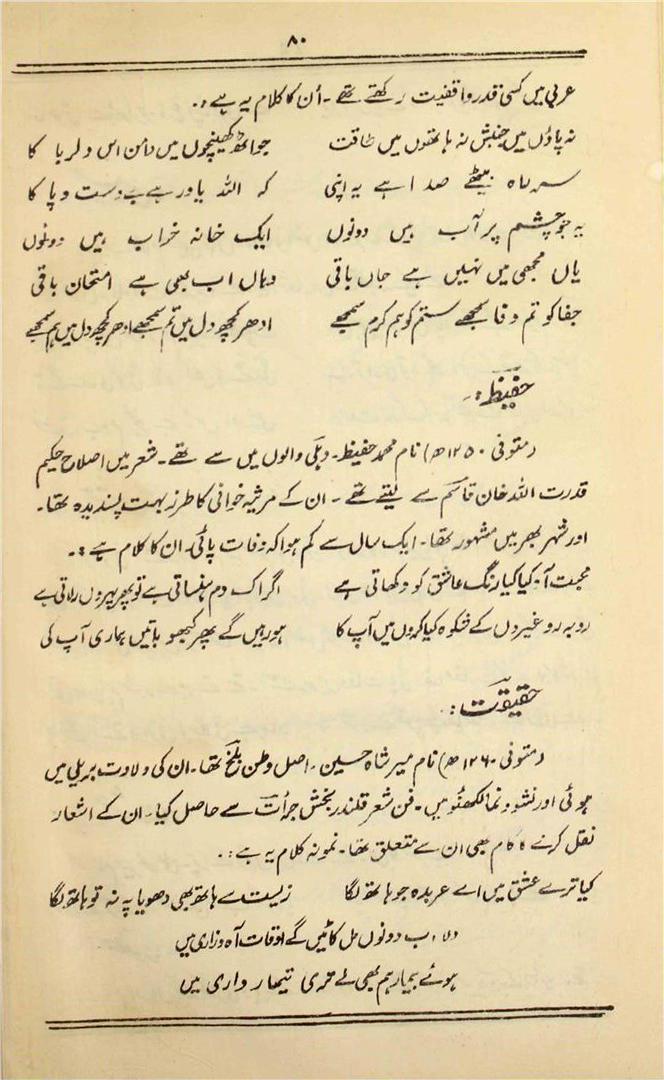 ۸۰
عربی میں کسی قدر واقفیت رکھتے تھے ۔ اُن کا کلام یہ ہے :.
نہ پاؤں میں جنبش نہ ہاتھوں میں طاقت جو اٹھ کھینچوں میں دامن اس دلربا کا
سر راہ بیٹھے صدا ہے یہ اپنی کہ اللہ یاور ہے بے دست و پا کا
یہ جو چشم پر آب ہیں دونوں ایک خانہ خراب ہیں دونوں
یاں مجھی میں نہیں ہے جاں باقی وہاں اب بھی ہے امتحان باقی
جفا کو تم وفا سمجھے ستم کو ہم کرم سمجھے ادھر کچھ دل میں تم سمجھے ادھر کچھ دل میں ہم سمجھے
حفیظ :۔
(متوفی ۱۲۵۰ھ) نام محمد حفیظ ۔ دہلی والوں میں سے تھے ۔ شعر میں اصلاح حکیم
قدرت اللہ خان قاسم سے لیتے تھے ۔ ان کے مرثیہ خوانی کا طرز بہت پسندیدہ تھا ۔
اور شہر بھر میں مشہور تھا ۔ ایک سال سے کم ہوا کہ وفات پائی ۔ ان کا کلام ہے :۔
محبت آہ کیا کیا رنگ عاشق کو دکھاتی ہے اگر اک دم ہنساتی ہے تو پھر پہروں رلاتی ہے
روبرو غیروں کے شکوہ کیا کروں میں آپ کا ہو رہیں گے پھر کبھو باتیں ہماری آپ کی
حقیقت :.
(متوفی ۱۲۶۰ھ) نام میر شاہ حسین ۔ اصل وطن بلخ تھا ۔ ان کی ولادت بریلی میں
ہوئی اور نشو و نما لکھنؤ میں ۔ فن شعر قلندر بخش جرأت سے حاصل کیا ۔ ان کے اشعار
نقل کرنے کا کام بھی ان سے متعلق تھا ۔ نمونہ کلام یہ ہے :.
کیا ترے عشق میں اے عربدہ جو ہاتھ لگا زیست سے ہاتھ بھی دھویا پہ نہ تو ہاتھ لگا
دلا اب دونوں مل کاٹیں گے اوقات آہ و زاری میں
ہوئے بیمار ہم بھی لے تری تیمارداری میں